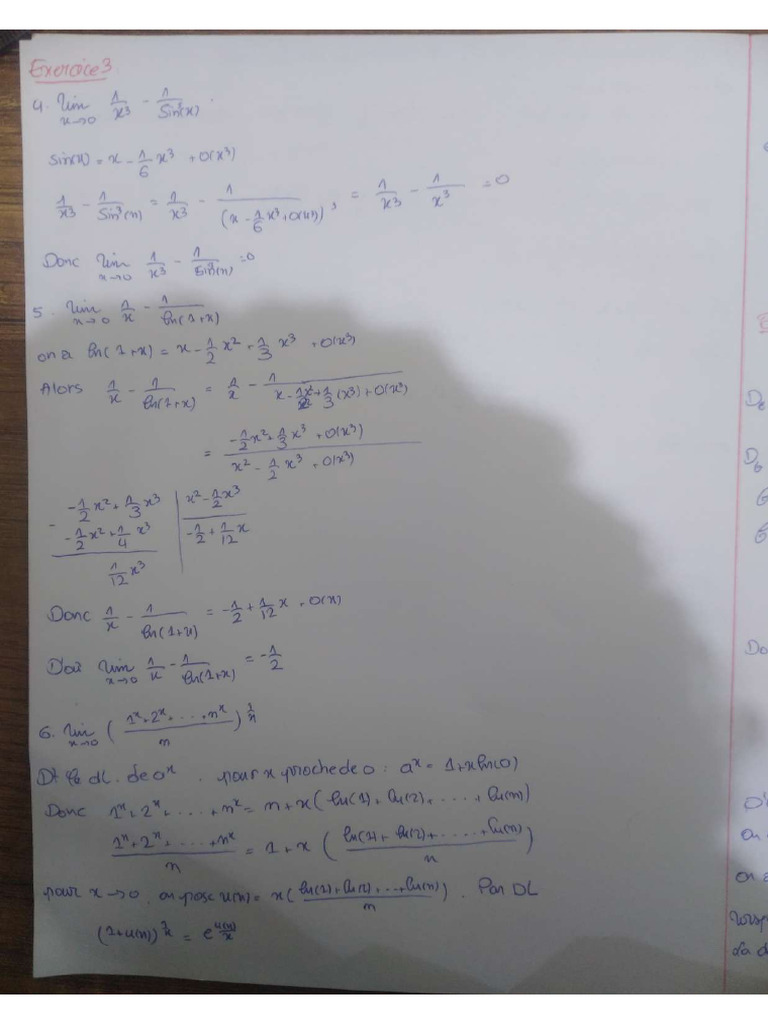 Exercice 3
4. lim x→0 1/x³ - 1/sin³(x)
sin(x) = x - 1/6 x³ + o(x³)
1/x³ - 1/sin³(x) = 1/x³ - 1/(x - 1/6 x³ + o(x))³ = 1/x³ - 1/x³ = 0
Donc lim x→0 1/x³ - 1/sin³(x) = 0
5. lim x→0 1/x - 1/ln(1+x)
on a ln(1+x) = x - 1/2 x² + 1/3 x³ + o(x³)
Alors 1/x - 1/ln(1+x) = 1/x - 1/(x - 1/2 x² + 1/3 (x³) + o(x³))
= (-1/2 x² + 1/3 x³ + o(x³))/(x² - 1/2 x³ + o(x³))
-1/2 x² + 1/3 x³ | x² - 1/2 x³
- -1/2 x² + 1/4 x³ | -1/2 + 1/12 x
1/12 x³
Donc 1/x - 1/ln(1+x) = -1/2 + 1/12 x + o(x)
D'où lim x→0 1/x - 1/ln(1+x) = -1/2
6. lim x→0 ((1ˣ + 2ˣ + ... + nˣ)/n)^(1/x)
DL de aˣ pour x proche de 0 : aˣ = 1 + x ln(a)
Donc 1ˣ + 2ˣ + ... + nˣ = n + x (ln(1) + ln(2) + .... + ln(n))
(1ˣ + 2ˣ + ... + nˣ)/n = 1 + x ((ln(1) + ln(2) + ..... + ln(n))/n)
pour x → 0, on pose u(x) = x((ln(1) + ln(2) + ... + ln(n))/n). Par DL
(1 + u(x))^(1/x) = e^(u(x)/x)